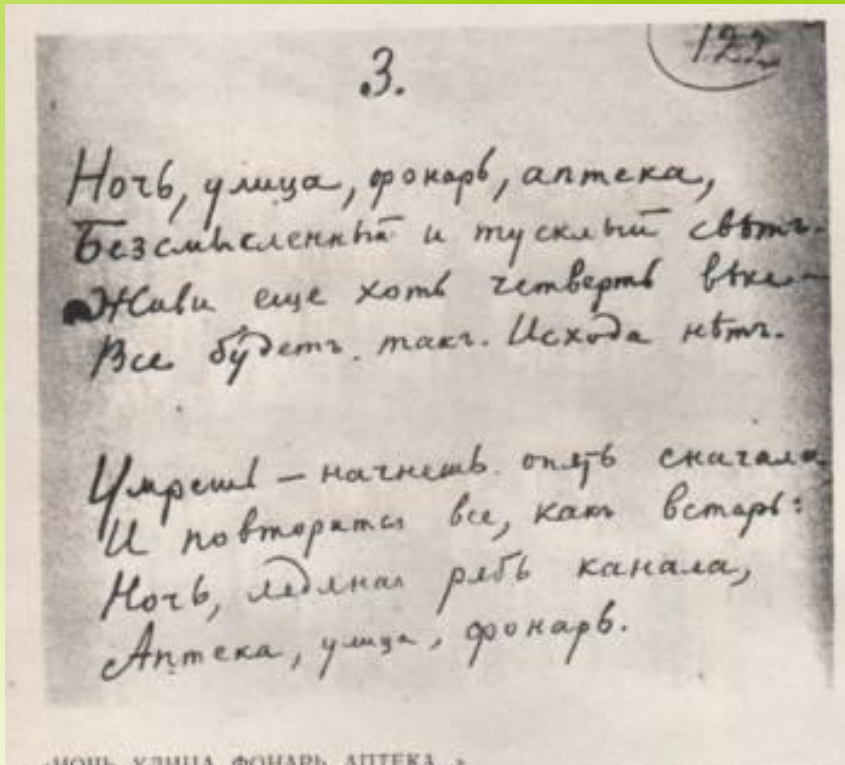 122
3.
Ночь, улица, фонарь, аптека,
Безсмысленный и тусклый свѣтъ.
Живи еще хоть четверть вѣка –
Все будетъ такъ. Исхода нѣтъ.
Умрешь – начнешь опять сначала
И повторится все, какъ встарь:
Ночь, ледяная рябь канала,
Аптека, улица, фонарь.
«НОЧЬ, УЛИЦА, ФОНАРЬ, АПТЕКА...»